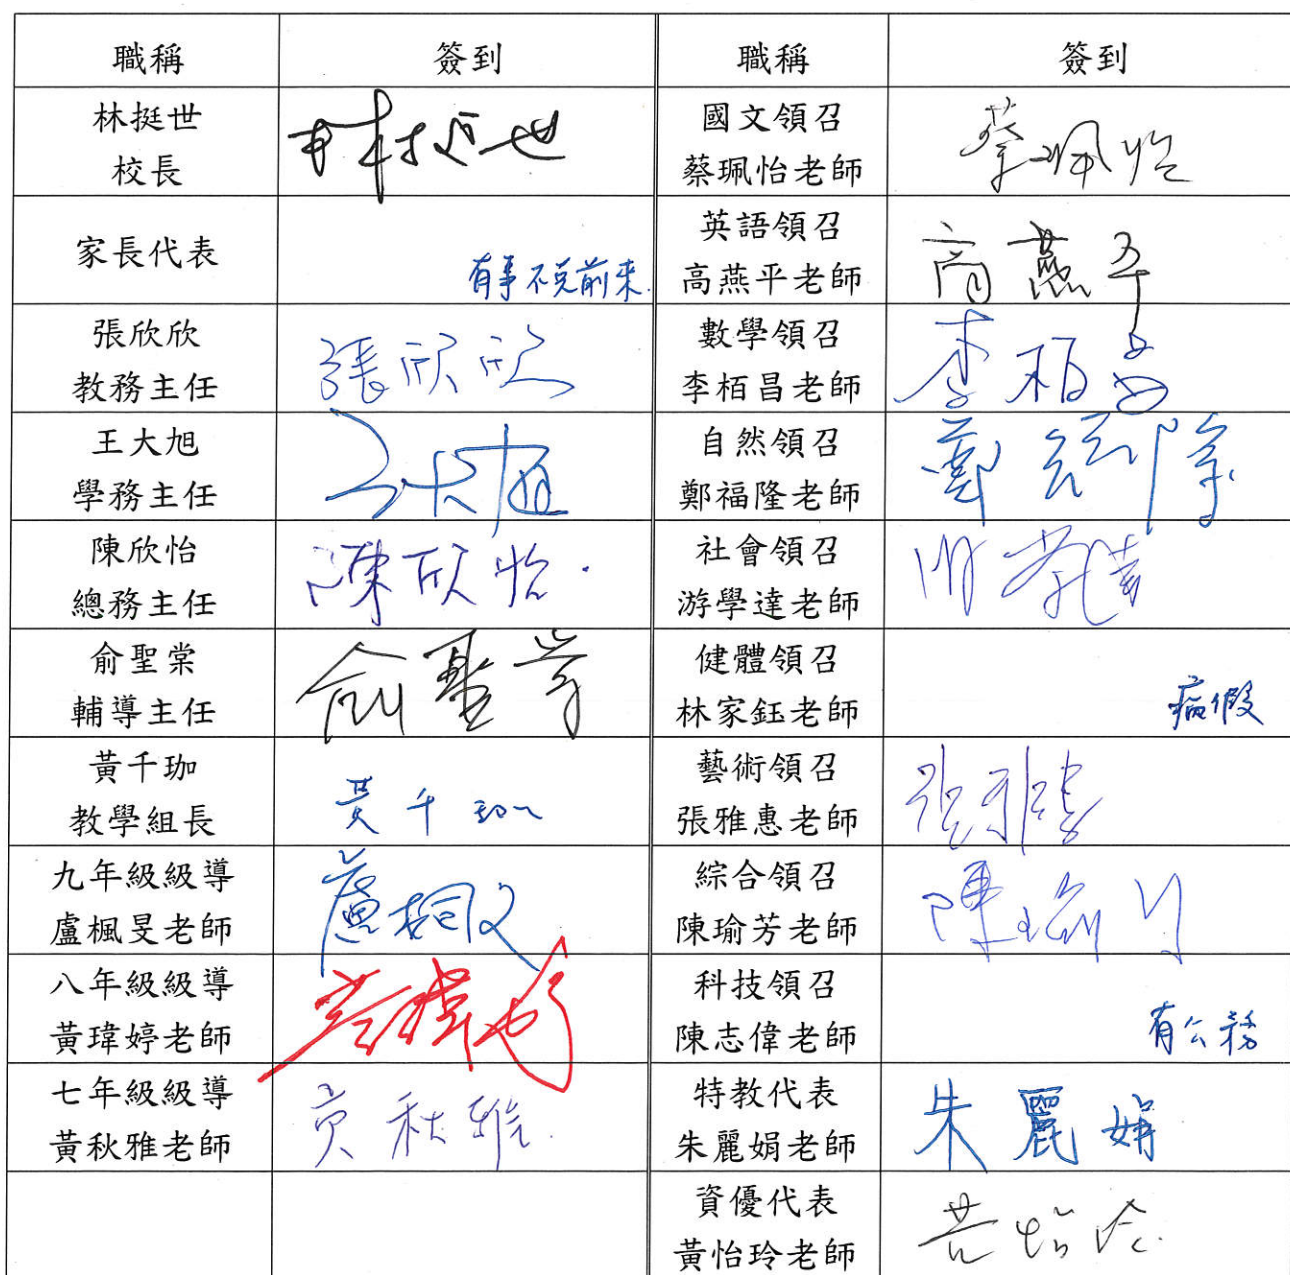 職稱 簽到 職稱 簽到
林挺世 校長 林挺世 國文領召 蔡珮怡老師 蔡珮怡
家長代表 有事不克前來. 英語領召 高燕平老師 高燕平
張欣欣 教務主任 張欣欣 數學領召 李栢昌老師 李栢昌
王大旭 學務主任 王大旭 自然領召 鄭福隆老師 鄭福隆
陳欣怡 總務主任 陳欣怡. 社會領召 游學達老師 游學達
俞聖棠 輔導主任 俞聖棠 健體領召 林家鈺老師 病假
黃千珈 教學組長 黃千珈 藝術領召 張雅惠老師 張雅惠
九年級級導 盧楓旻老師 綜合領召 陳瑜芳老師 陳瑜芳
八年級級導 黃瑋婷老師 黃瑋婷 科技領召 陳志偉老師 有公務
七年級級導 黃秋雅老師 黃秋雅. 特教代表 朱麗娟老師 朱麗娟
資優代表 黃怡玲老師 黃怡玲.